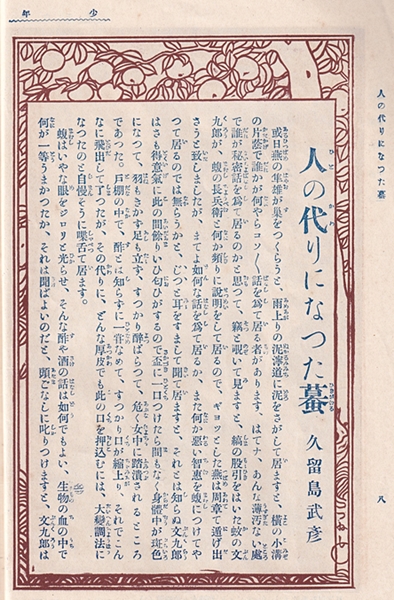 少年
人の代りになつた蟇
八
人の代りになつた蟇
久留島武彦
或日燕の隼雄が巣をつくらうと、雨上りの泥濘道に泥をさがして居ますと、橫の小溝
の片蔭で誰かが何やらコソ〳〵話を爲て居る者があります、はてナ、あんな薄汚ない處
で誰が秘密話を爲て居るのかと思つて、竊と覗いて見ますと、縞の股引をはいた蚊の文
九郎が、蝮の長兵衛と何か頻りに説明をして居るので、ギョッとした燕は周章て遁げ出
さうと致しましたが、まてよ如何な話を爲て居るか、また何か惡い智惠を蝮につけてや
つて居るのでは無らうかと、じつと耳をすまして聞て居ますと、それとは知らぬ文九郎
はさも得意氣に此の間餘りいひ匂ひがするので盃に一口つけたら間もなく身體中が斑色
になつて、羽もきかず足も立ず、すつかり醉ぱらつて、危く女中に踏潰されるところ
であつた。戸棚の中で、酢とは知らずに一舌なめて、すつかり口が縮上り、それでこん
なに飛出して了つたが、その代りに、どんな厚皮でも此の口を押込むには、大變調法に
なつたのと自慢そうに喋舌て居ます。
蝮はいやな眼をジロリと光らせ、そんな酢や酒の話は如何でもよい、生物の血の中で
何が一等うまかつたか、それは聞ばよいのだと、頭ごなしに叱りつけますと、文九郎